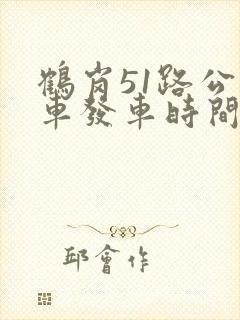 鶴崗51路公
車發車時間
邱會作